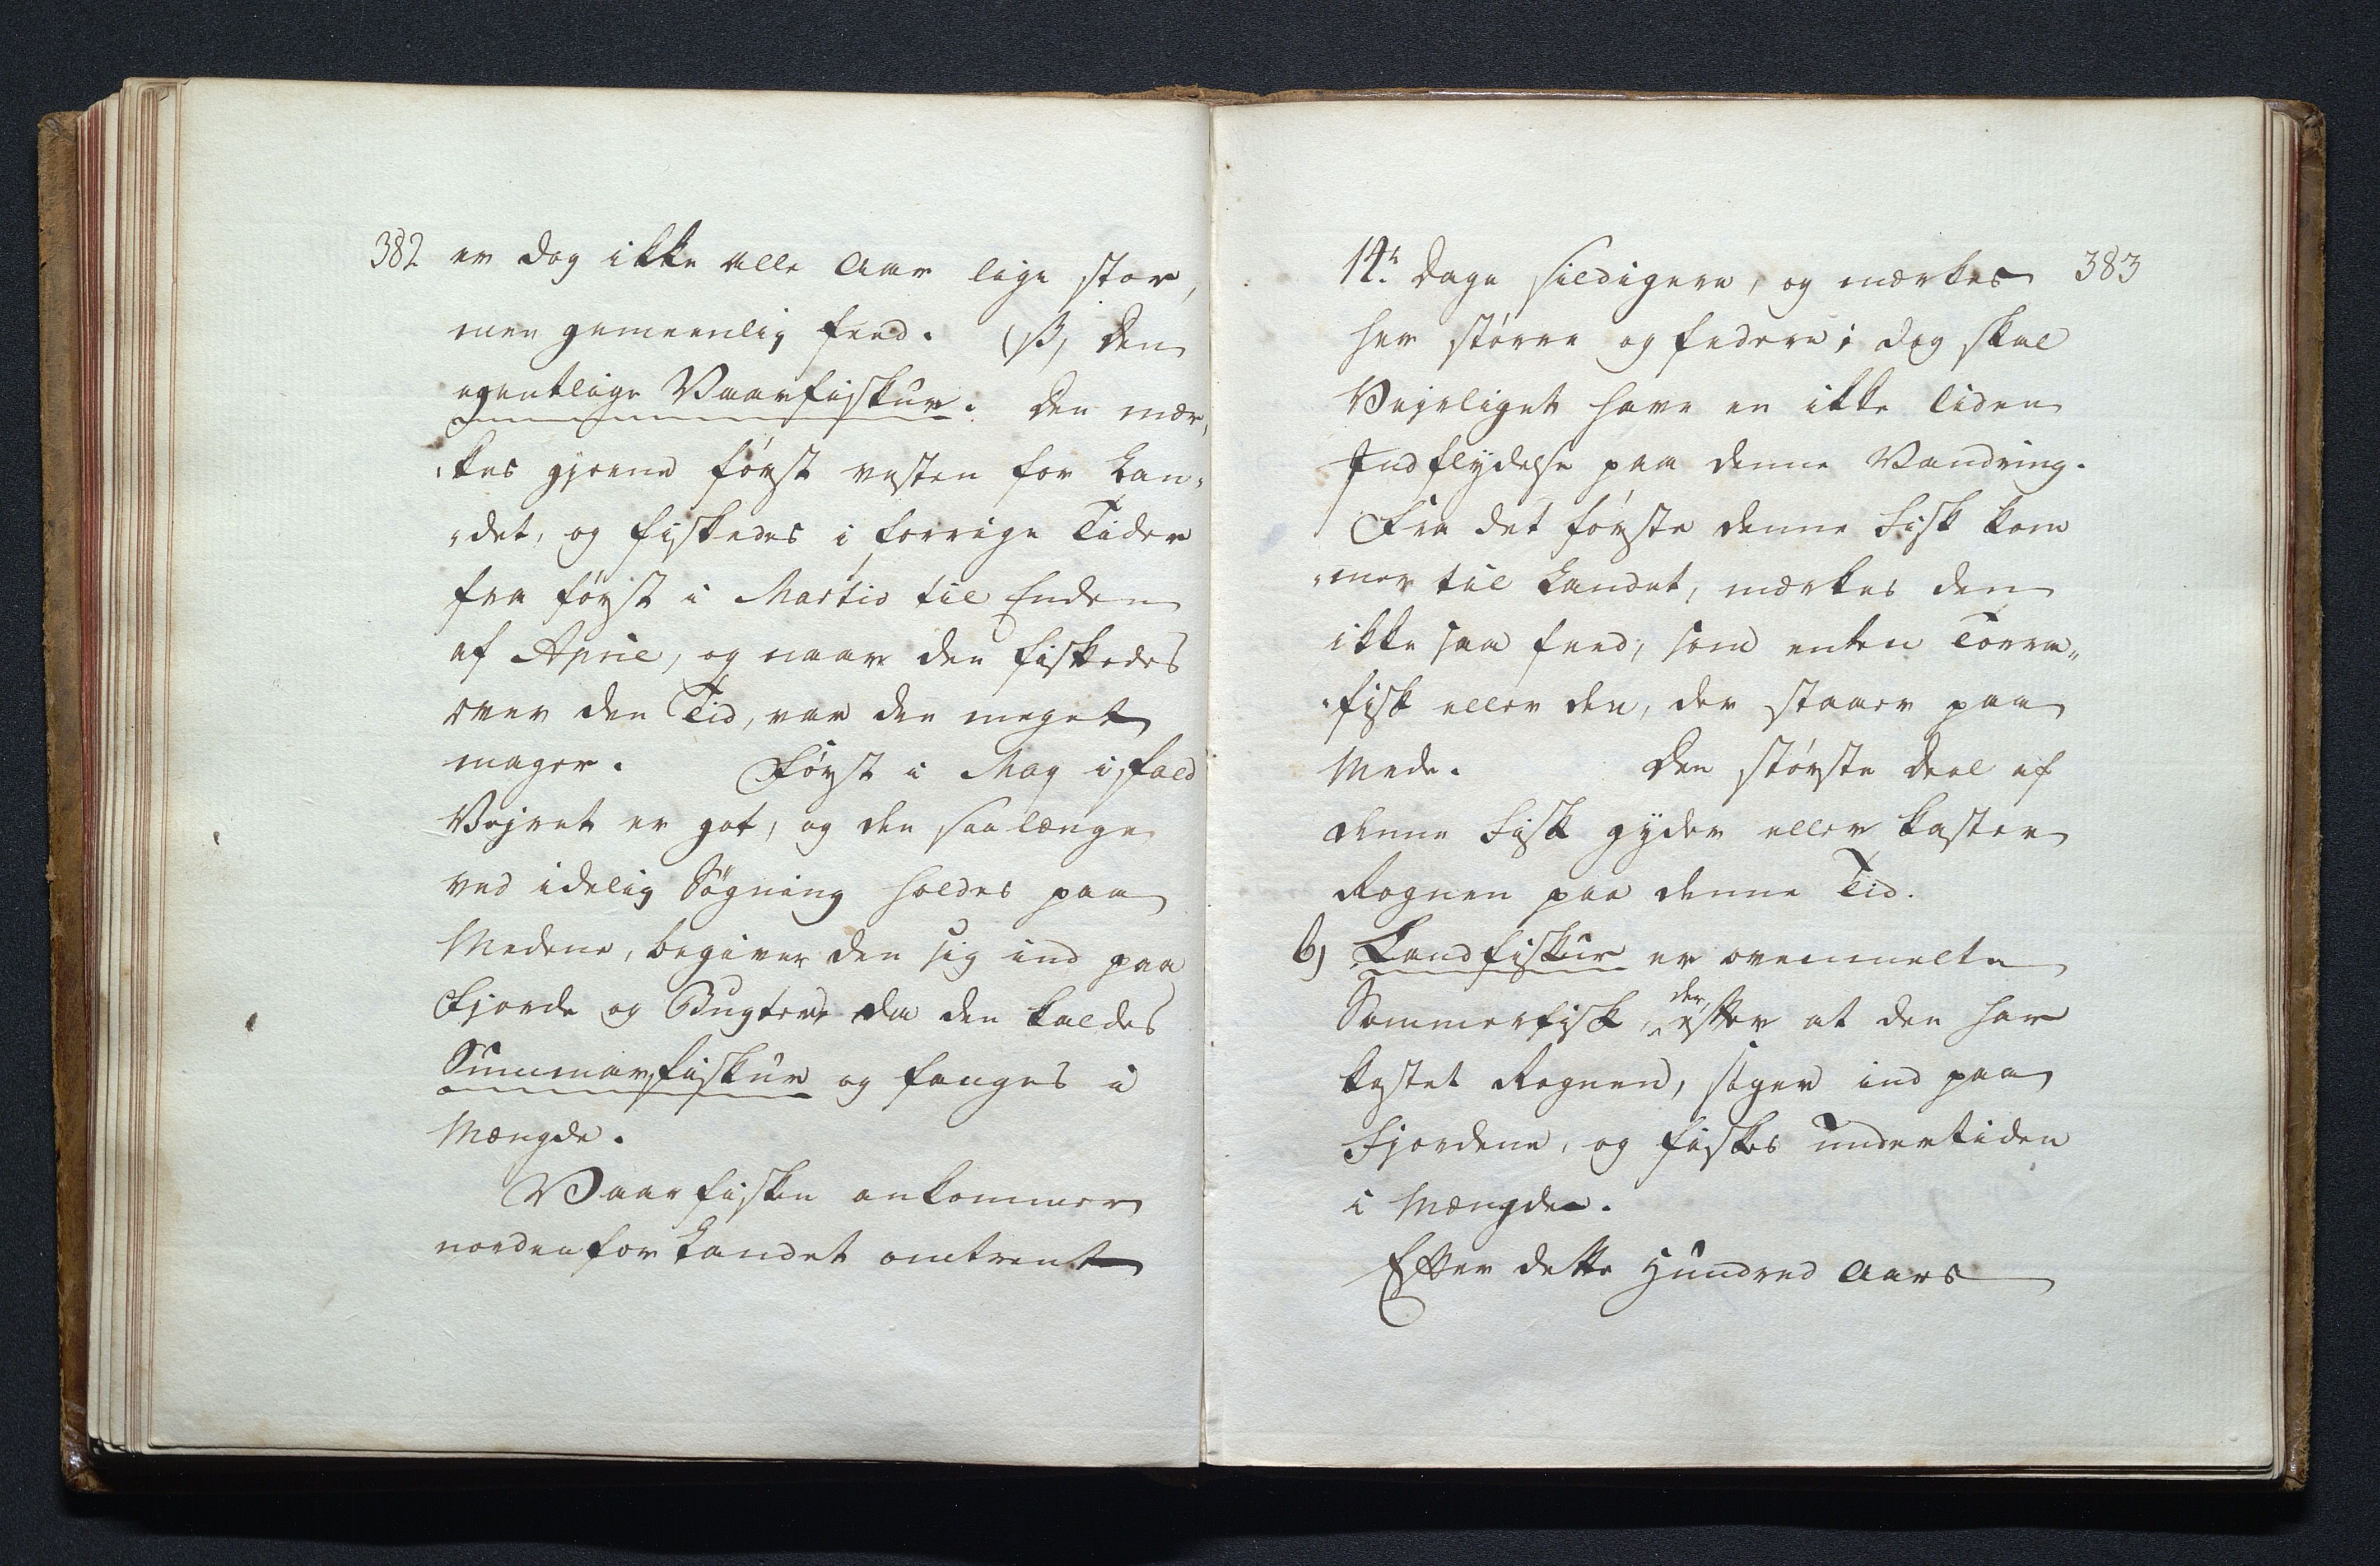 382 er dog ikke alle Aar lige stor,
men gemeenlig feed. (β, den
egentlige Vaarfiskur. den mær,
,kes gjerne først vesten for Lan,
,det, og fiskedes i forrige Tider
fra først i Martio til Enden
af April, og naar den fiskedes
over den Tid, var den meget
mager. Først i May ifald
Vejret er got, og den saa længe
ved idelig Søgning holdes paa
Medene, begiver den sig ind paa
Fjorde og Bugter, da den kaldes
Summarfiskur og fanges i
Mængde.
Vaarfisken ankommer
nordenfor Landet omtrent
14r. Dage sildigere, og mærkes 383
her større og federe; dog skal
Vejrliget have en ikke liden
Indflydelse paa denne Vandring.
Fra det første denne Fisk kom
,mer til Landet, mærkes den
ikke saa feed, som enten Torra„
,fisk eller den, der staaer paa
Mede. Den største deel af
denne Fisk gyder eller kaster
Rognen paa denne Tid.
b) Landfiskur er ovenmelte
Sommerfisk, der, efter at den har
kastet Rognen, søger ind paa
Fjordene, og fiskes undertiden
i Mængde.
Efter dette Hundred Aars